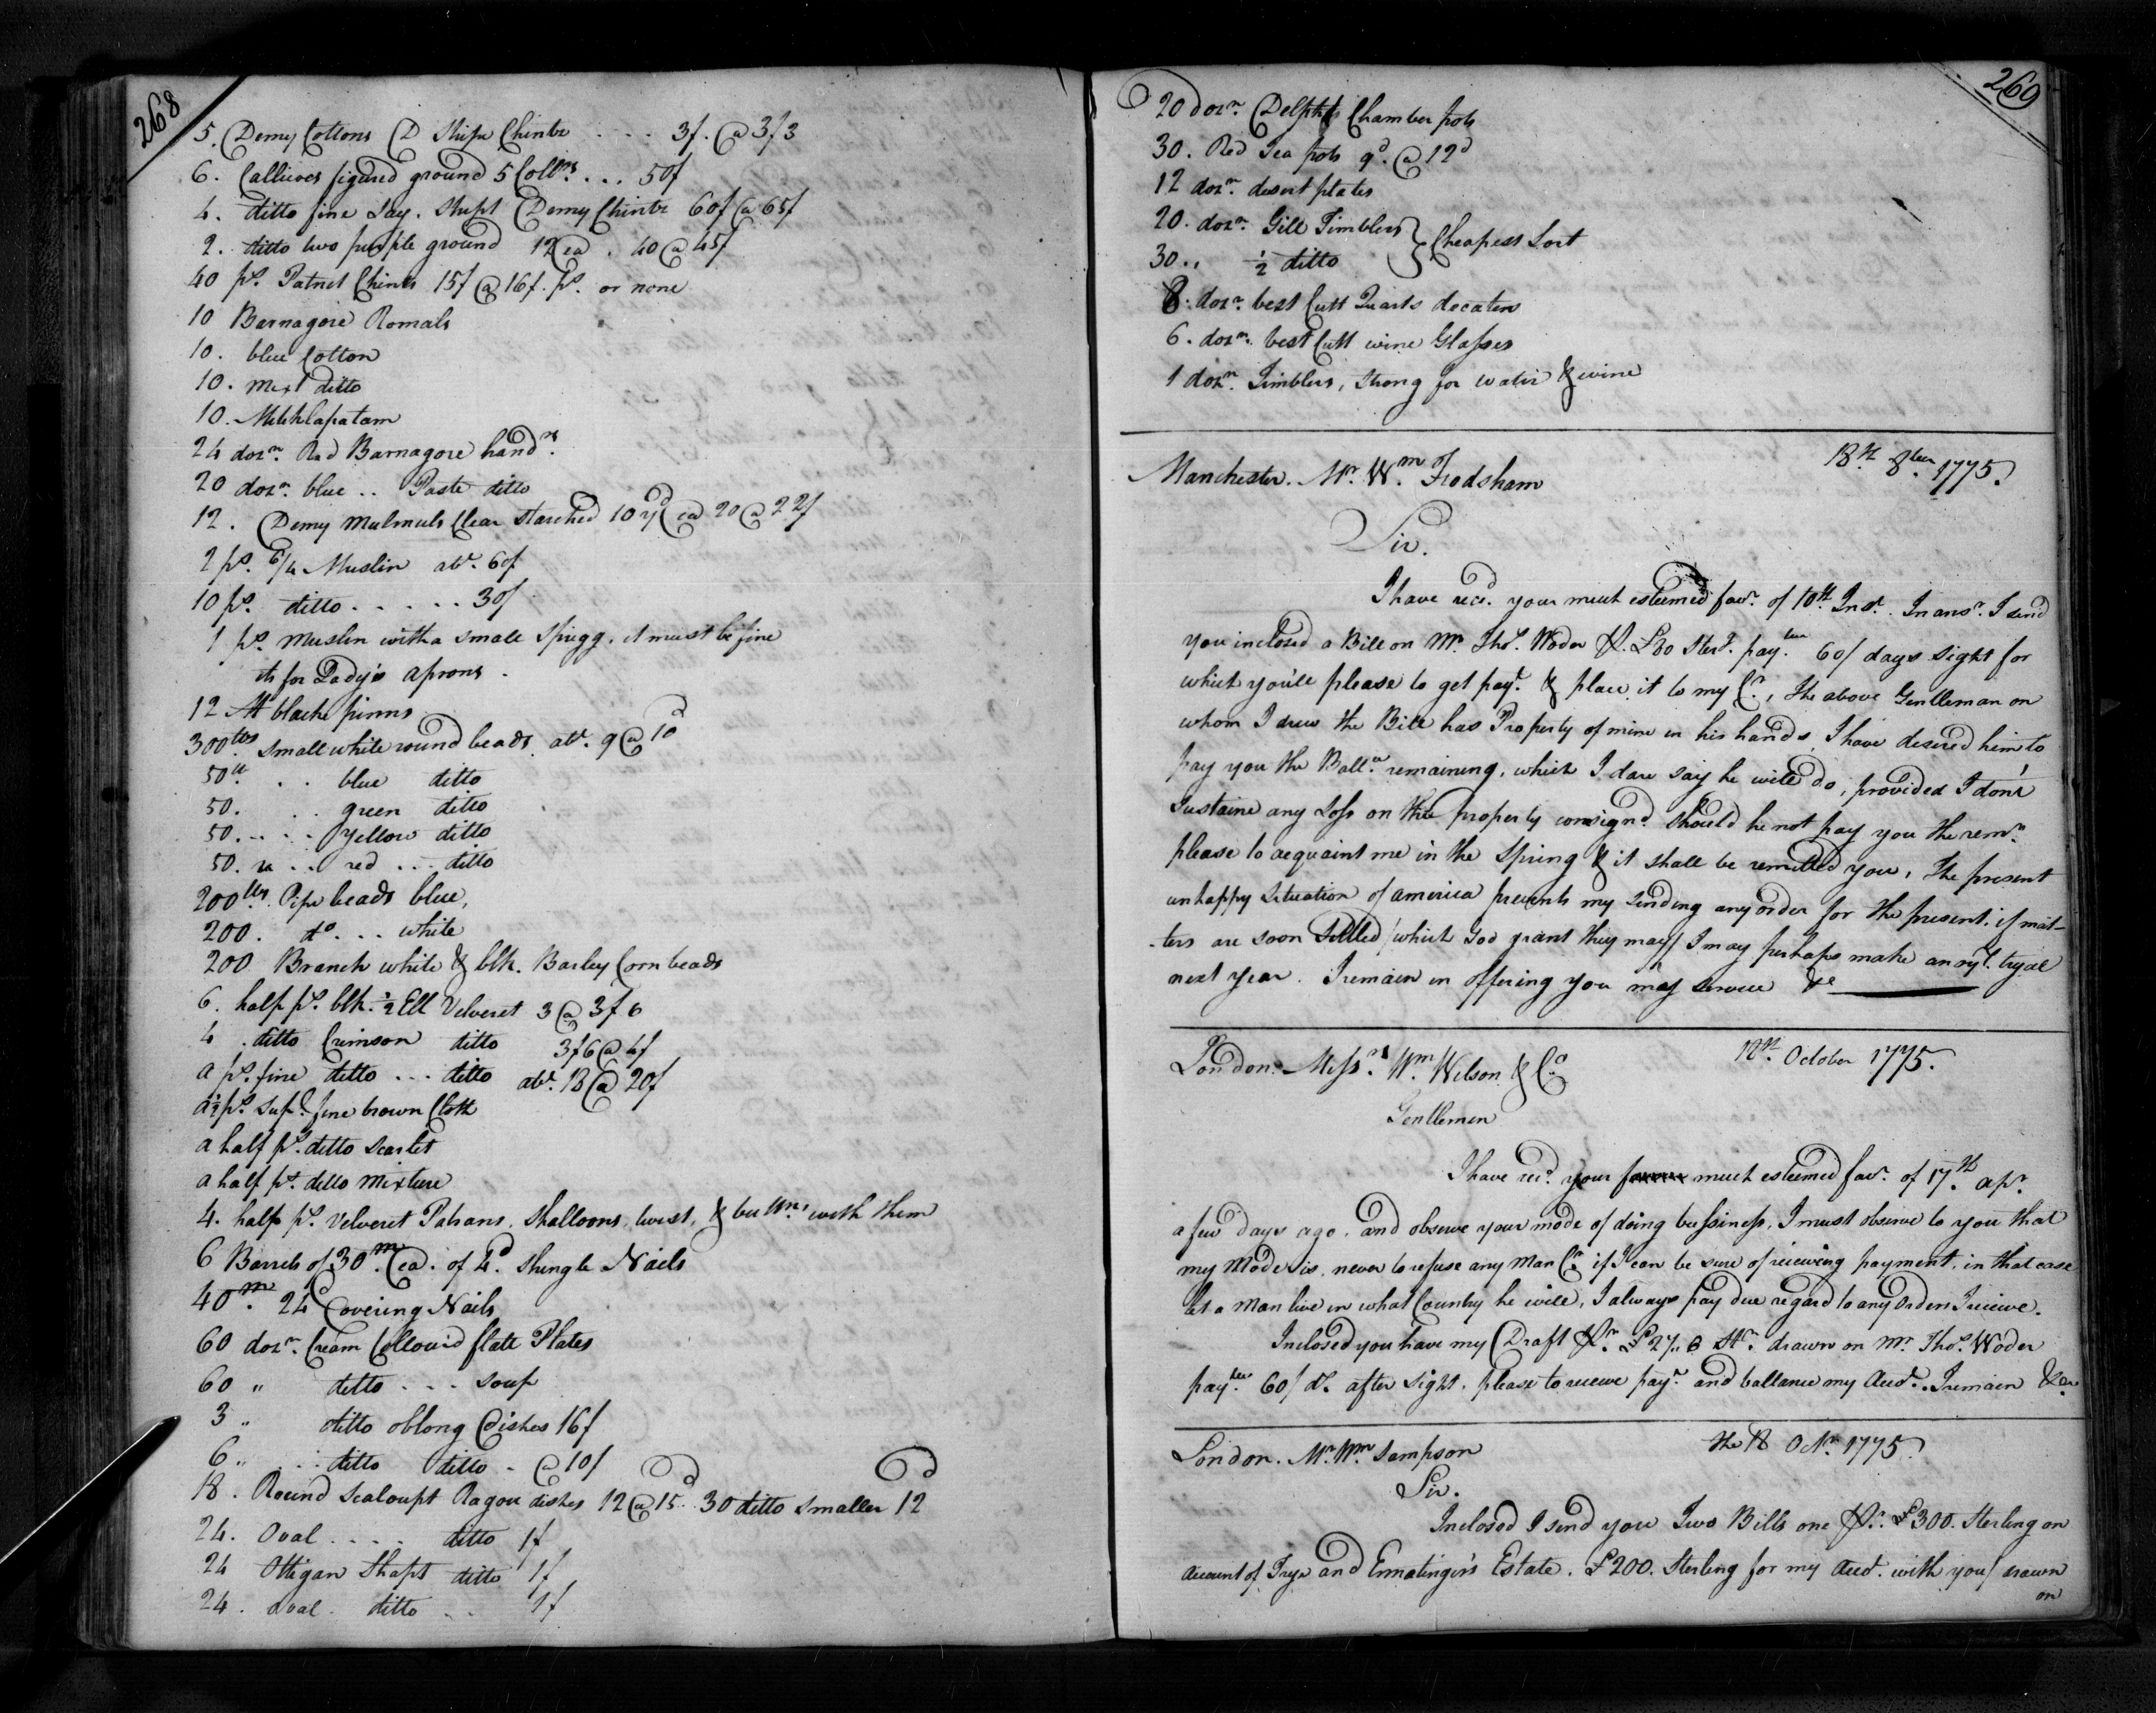 268
5. Demy Cottons D Stripe Chintz .... 3/. @ 3/3
6. Callicoes figured ground 5 Coll.rs ... 50/
4. ditto fine Stript Demy Chintz 60/ @ 65/
2. ditto two purple ground 12 ea. 40 @ 45/
40 ps. Patnet Chints 15/ @ 16/. ps. or none
10 Barnagore Romals
10. blue Cotton
10. mixt ditto
10.
24 dozn. Red Barnagore hand.rs
20 dozn. blue .. Paste ditto
12. Demy mulmuls Clear Starched 10 yd ea 20 @ 22/
2 ps. 6/4 Muslin abt. 60/
10 ps. ditto ..... 30/
1 ps. muslin with a small Sprigg, it must be fine
its for Lady's aprons.
12 M blacke pinns
300 lbs small white round beads. abt. 9 @ 10d
50 lb. .. blue ditto
50. .. green ditto
50. .... yellow ditto
50. .. red ... ditto
200 lbs. Pipe beads blue,
200. do. .. white
200 Branch white & blk. Barley Corn beads
6. half ps. blk. ½ Ell Velveret 3 @ 3/6
4. ditto Crimson ditto 3/6 @ 4/
a ps. fine ditto ... ditto abt. 18 @ 20/
a ½ ps. supr. fine brown Cloth
a half ps. ditto Scarlet
a half ps. ditto mixture
4. half ps. Velveret Patrans. Shalloons, twist, & buttns. with them
6 Barrels of 30 m. ea. of 4d. Shingle Nails
40 m. 24 Covering Nails
60 dozn. Cream Collour'd flatt Plates
60 " ditto ... soup
3 " ditto oblong Dishes 16/
6 " .. ditto ditto - @ 10/
18. Round Scaloupt Ragou dishes 12 @ 15d. 30 ditto smaller 12d
24. Oval .... ditto 1/
24 Ottigan Shapt ditto 1/
24. oval. ditto .. 1/
269
20 dozn. Delph Chamber pots
30. Red Tea pots 9d. @ 12d
12 dozn. desert plates
20. dozn. Gill Timblers } Cheapest Sort
30 .. ½ ditto
8. dozn. best Cutt Quarts decaters
6. dozn. best Cutt wine Glasses
1 dozn. Timblers, Strong for water & wine
Manchester. Mr. Wm. Frodsham 18th. 8ber 1775.
Sir.
I have recd. your much esteemed favr. of 10th. Inst. In ansr. I send
you inclosed a Bill on Mr. Thos. Woder Pr. £30 Sterg. payble. 60/ days Sight for
which you'll please to get payt. & place it to my Ct., The above Gentleman on
whom I drew the Bill has Property of mine in his hands, I have desired him to
pay you the Ballce. remaining, which I dare say he will do, provided I don't
Sustaine any Loss on the property consignd. Should he not pay you the remr.
please to acquaint me in the Spring & it shall be remitted you, The present
unhappy Situation of america prevents my Sending any order for the present. if mat-
-ters are soon Settled/ which God grant they may/ I may perhaps make an tryal
next year. I remain in offering you my Service &c
London. Messrs. Wm. Wilson & Co. 18th. October 1775.
Gentlemen
I have recd. your much esteemed favr. of 17th. apr.
a few days ago. and observe your mode of doing bussiness, I must observe to you that
my Mode is, never to refuse any Man Ct. if I can be sure of recieving payment. in that case
let a Man live in what Country he will, I always pay due regard to any Orders I recieve.
Inclosed you have my Draft Pr. £27..6 Str. drawn on Mr. Thos. Woder
payble. 60/ ds. after Sight. please to recieve payt. and ballance my Acct. I remain &ca.
London. Mr. Wm. Sampson the 18 Octr. 1775.
Sir.
Inclosed I send you Two Bills one Pr. £300. Sterling on
Account of Trye and Ermatinger's Estate. £200. Sterling for my Acct. with you/ drawn
on